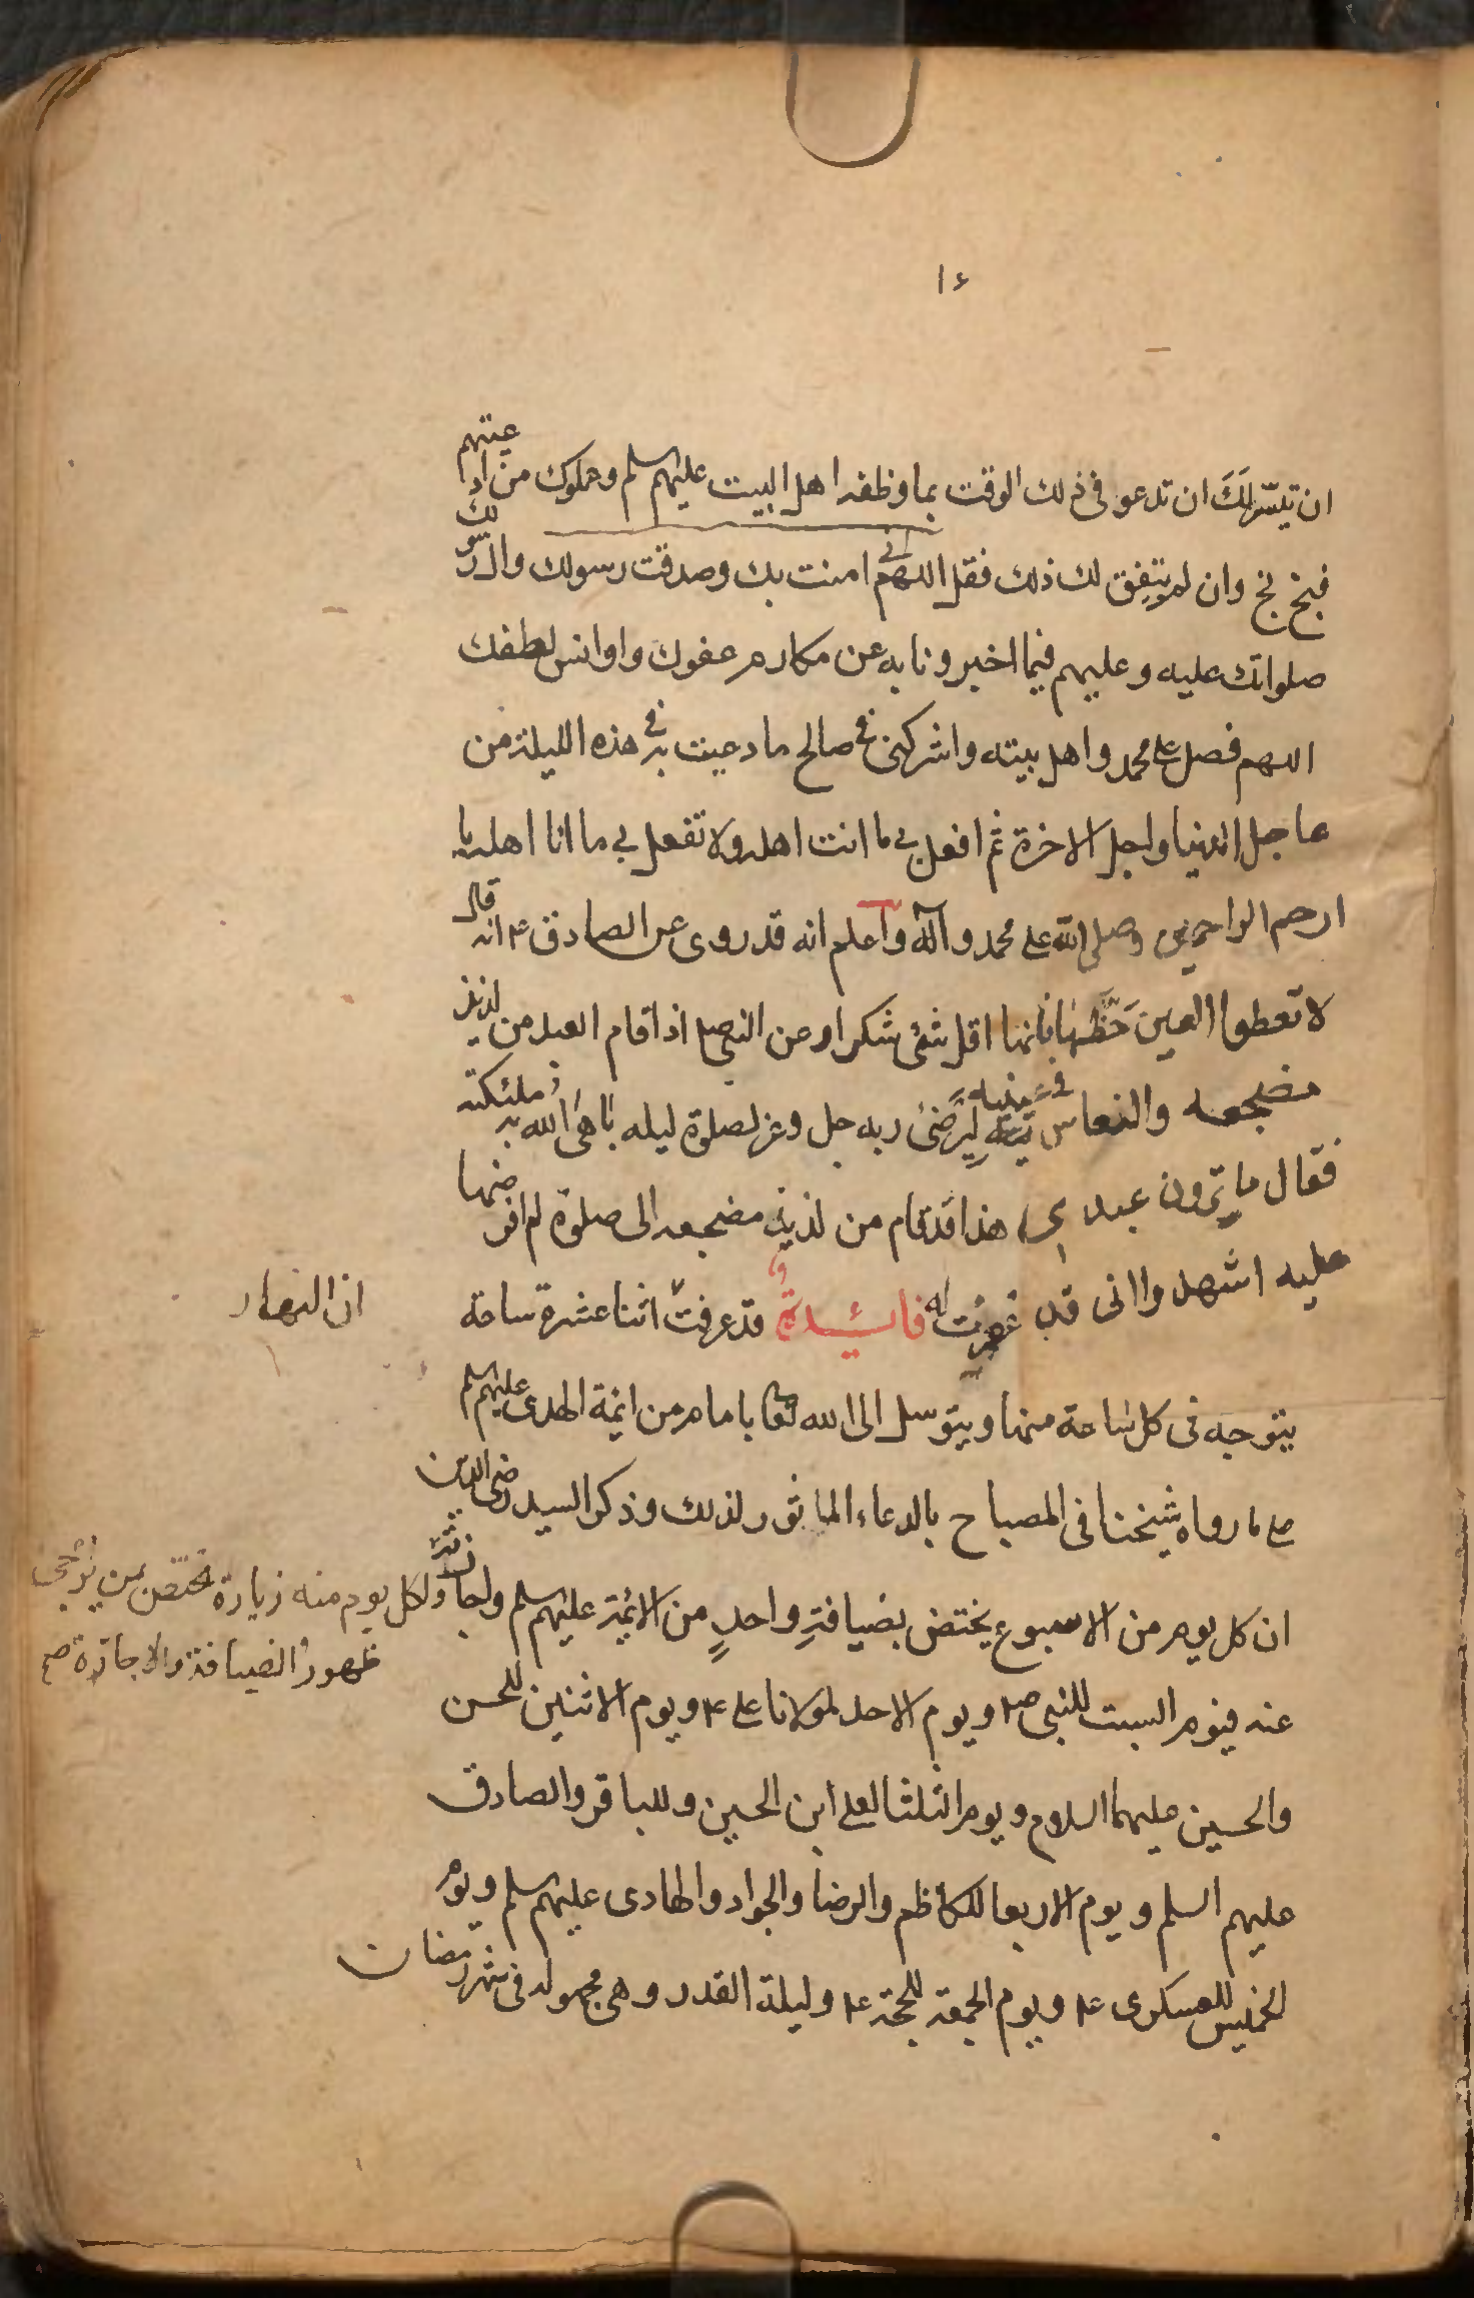 ١٤
ان تيسّر لَكَ ان تدعو فى ذلك الوقت بما وظفه اهل البيت عليهم السلم وحملوك من ادعيتهم
فبخ بخ وان لم يتفق لك ذلك فقل اللهم انى امنت بك وصدقت رسولك وال رسولك
صلواتك عليه وعليهم فيما اخبرونا به عن مكارم عفوك واوانس لطفك
اللهم فصل على محمد واهل بيته واشركنى فى صالح ما دعيت به فى هذه الليلة من
عاجل الدنيا واجل الاخرة ثم افعل بى ما انت اهله ولا تفعل بى ما انا اهله يا
ارحم الراحمين وصلى الله على محمد وآله وآعلم انه قد روى عن الصادق ع انه قال
لا تعطوا العين حَظَّهٰا فانها اقل شئ شكرا وعن النبى ص اذا قام العبد من لذيذ
مضجعه والنعاس فى عينيه لِيَرْضىٰ ربه جل وعز لصلوة ليله باهى الله به ملئكته
فقال ما ترون عبدى هذا قد قام من لذيذ مضجعه الى صلوة لم افرضها
عليه اشهدوا انى قد غفرت له فائدة و قد عرفت اثنا عشرة ساعة
ان النهار
يتوجه فى كل ساعة منها ويتوسل الى الله تعا بامام من ائمة الهدى عليهم السلم
على ما رواه شيخنا فى المصباح بالدعاء الماثور لذلك وذكر السيد رضى الدين
ان كل يوم من الاسبوع يختص بضيافةِ واحدٍ من الائمة عليهم السلم واجازته
ولكل يوم منه زيارة تختص بمن يرجى
ظهور الضيافة والاجازة صح
عنه فيوم السبت للنبى ص ويوم الاحد لمولانا على ع ويوم الاثنين للحسن
والحسين عليهما السلام ويوم الثلثا لعلى ابن الحسين وللباقر والصادق
عليهم السلم ويوم الاربعا للكاظم والرضا والجواد والهادى عليهم السلم ويوم
الخميس للعسكرى ع ويوم الجمعة للحجة ع وليلة القدر وهى مجهولة فى شهر رمضان